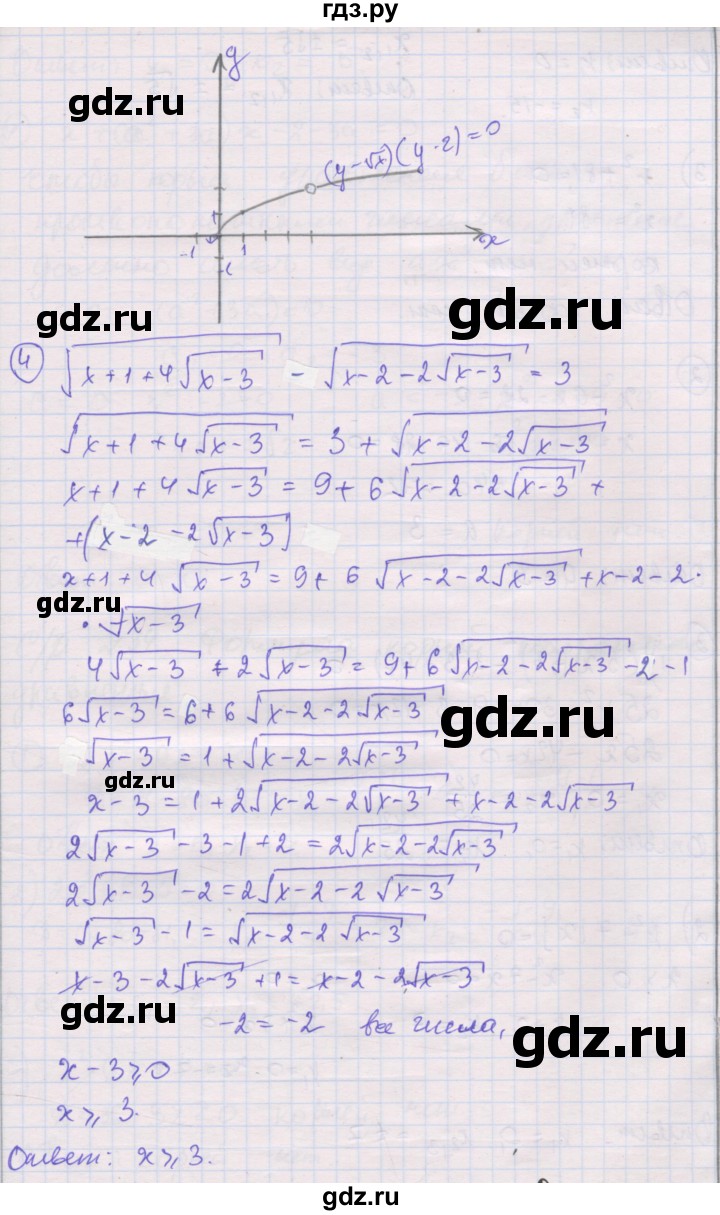 гдз.ру
y
gdz.ru
gdz.ru
(y-√x)(y-2)=0
1
-1 1 x
gdz.ru
gdz.ru
④ √(x+1+4√(x-3)) - √(x-2-2√(x-3)) = 3
√(x+1+4√(x-3)) = 3 + √(x-2-2√(x-3))
x+1+4√(x-3) = 9 + 6√(x-2-2√(x-3)) +
+(x-2-2√(x-3))
x+1+4√(x-3) = 9 + 6√(x-2-2√(x-3)) + x-2-2·
gdz.ru
·√(x-3)
4√(x-3) + 2√(x-3) = 9 + 6√(x-2-2√(x-3)) -2-1
6√(x-3) = 6 + 6√(x-2-2√(x-3))
gdz.ru
√(x-3) = 1 + √(x-2-2√(x-3))
gdz.ru
x-3 = 1 + 2√(x-2-2√(x-3)) + x-2-2√(x-3)
2√(x-3) -3-1+2 = 2√(x-2-2√(x-3))
2√(x-3) -2 = 2√(x-2-2√(x-3))
√(x-3) -1 = √(x-2-2√(x-3))
x-3-2√(x-3) +1 = x-2-2√(x-3)
gdz.ru
-2 = -2 все числа,
gdz.ru
x-3⩾0
x⩾3.
Ответ: x⩾3.
gdz.ru